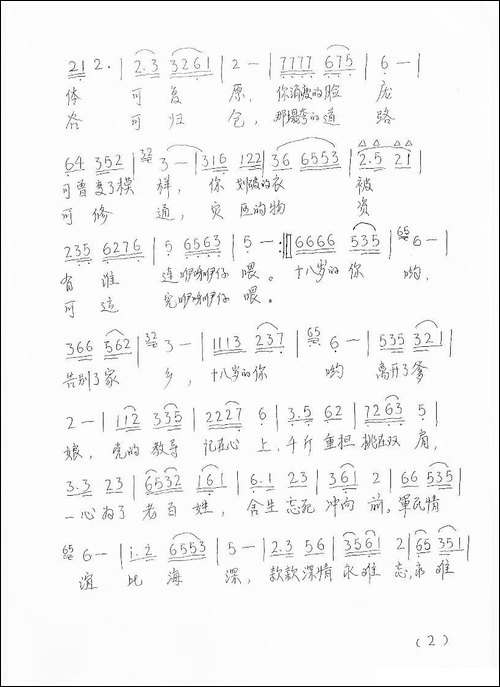 2 1 2 · | 2 . 3 3 2 6 1 | 2 － | 7 7 7 7 6 7 5 | 6 － |
体 可 复 原， 你消瘦的脸 庞
右 可 归 仓， 那塌弯的道 路
6 4 3 5 2 | 32 3 － | 3 1 6 1 2 2 | 3 6 6 5 5 3 | 2 . 5 2 1 |
可曾变了模 样， 你 划破的衣 被
可 修 通， 灾 区的物 资
2 3 5 6 2 7 6 | 5 6 5 6 3 | 5 － :‖ 6 6 6 6 5 3 5 | 65 6 － |
有 谁 连咿呦咿伢 喂。 十八岁的 你 哟，
可 运 完咿呦咿伢 喂。
3 6 6 5 6 2 | 32 3 － | 1 1 1 3 2 3 7 | 65 6 － | 5 3 5 3 2 1 |
告别了家 乡， 十八岁的你 哟 离开了爹
2 － | 1 1 2 3 3 5 | 2 2 2 7 6 | 3 . 5 6 2 | 7 2 6 3 5 |
娘， 党的 教导 记在心 上，千斤 重担 挑在双 肩，
3 . 3 2 3 | 6 5 3 2 1 6 1 | 6 . 1 2 3 | 3 6 1 2 | 6 6 5 3 5 |
一心为了 老百 姓， 舍生 忘死 冲向 前，軍民情
65 6 － | i . 2 6 5 5 3 | 5 － | 2 . 3 5 6 | 3 5 6 1 2 | 6 5 3 5 1 |
谊 比 海 深， 款款深情 永难 忘，永 难
( 2 )